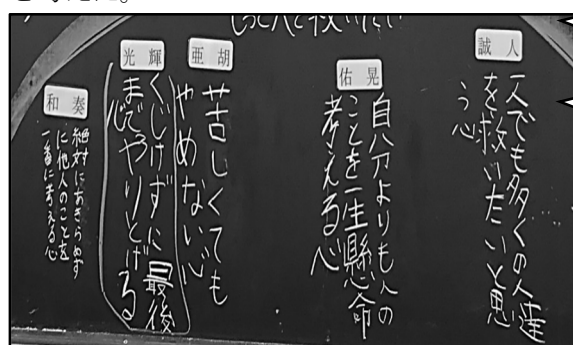 誠人
一人でも多くの人達
を救いたいと思
う心
佑晃
自分よりも人の
ことを一生懸命
考える心
亜胡
苦しくても
やめない心
光輝
くじけずに最後
までやりとげる
心
和奏
絶対にあきらめず
に他人のことを
一番に考える心